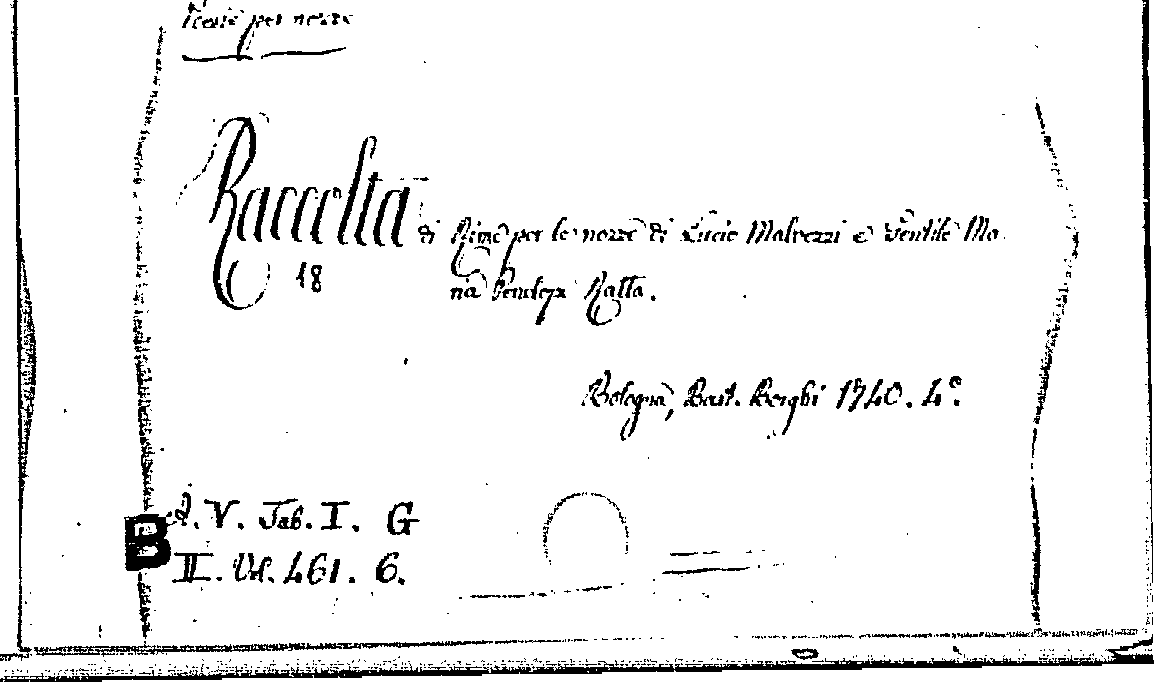 Poesie per nozze
Raccolta di Rime per le nozze di Lucio Malvezzi e Gentile Ma
ria Penelope Ratta.
18
Bologna, Bart. Borghi 1740. 4º.
B
A. V. Tab. I. G
II. Vol. 461. 6.